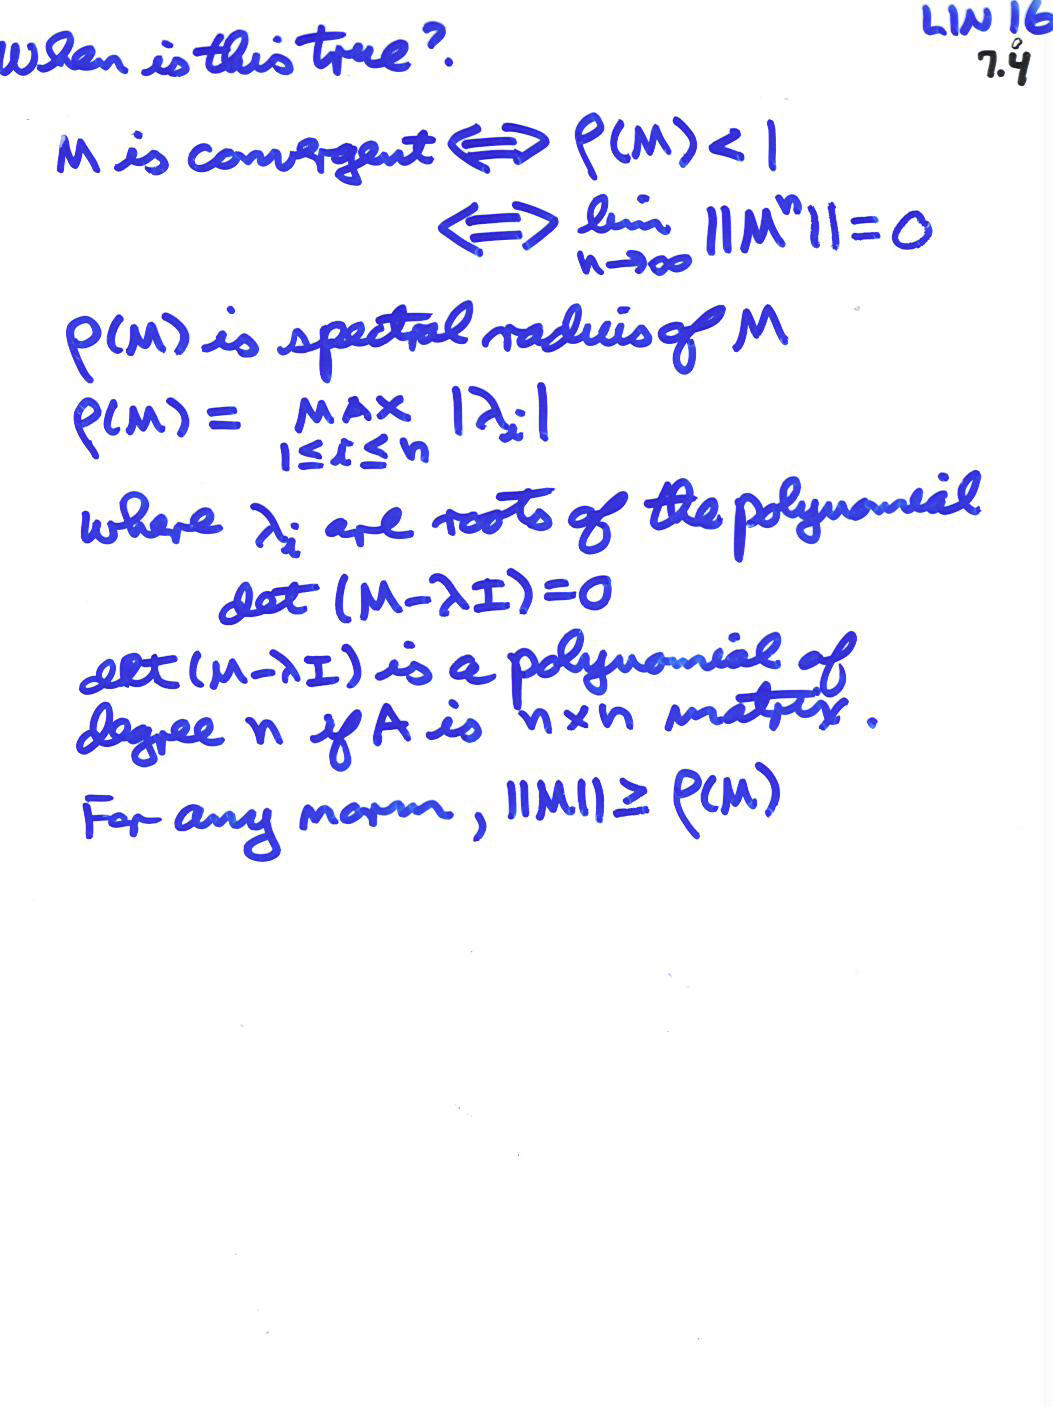 When is this true?
LIN 16
7.4
M is convergent ⟺ ρ(M) < 1
⟺ lim ||Mⁿ|| = 0
n→∞
ρ(M) is spectral radius of M
ρ(M) = MAX |λᵢ|
1≤i≤n
where λᵢ are roots of the polynomial
det (M-λI)=0
det (M-λI) is a polynomial of
degree n if A is n×n matrix.
For any norm, ||M|| ≥ ρ(M)